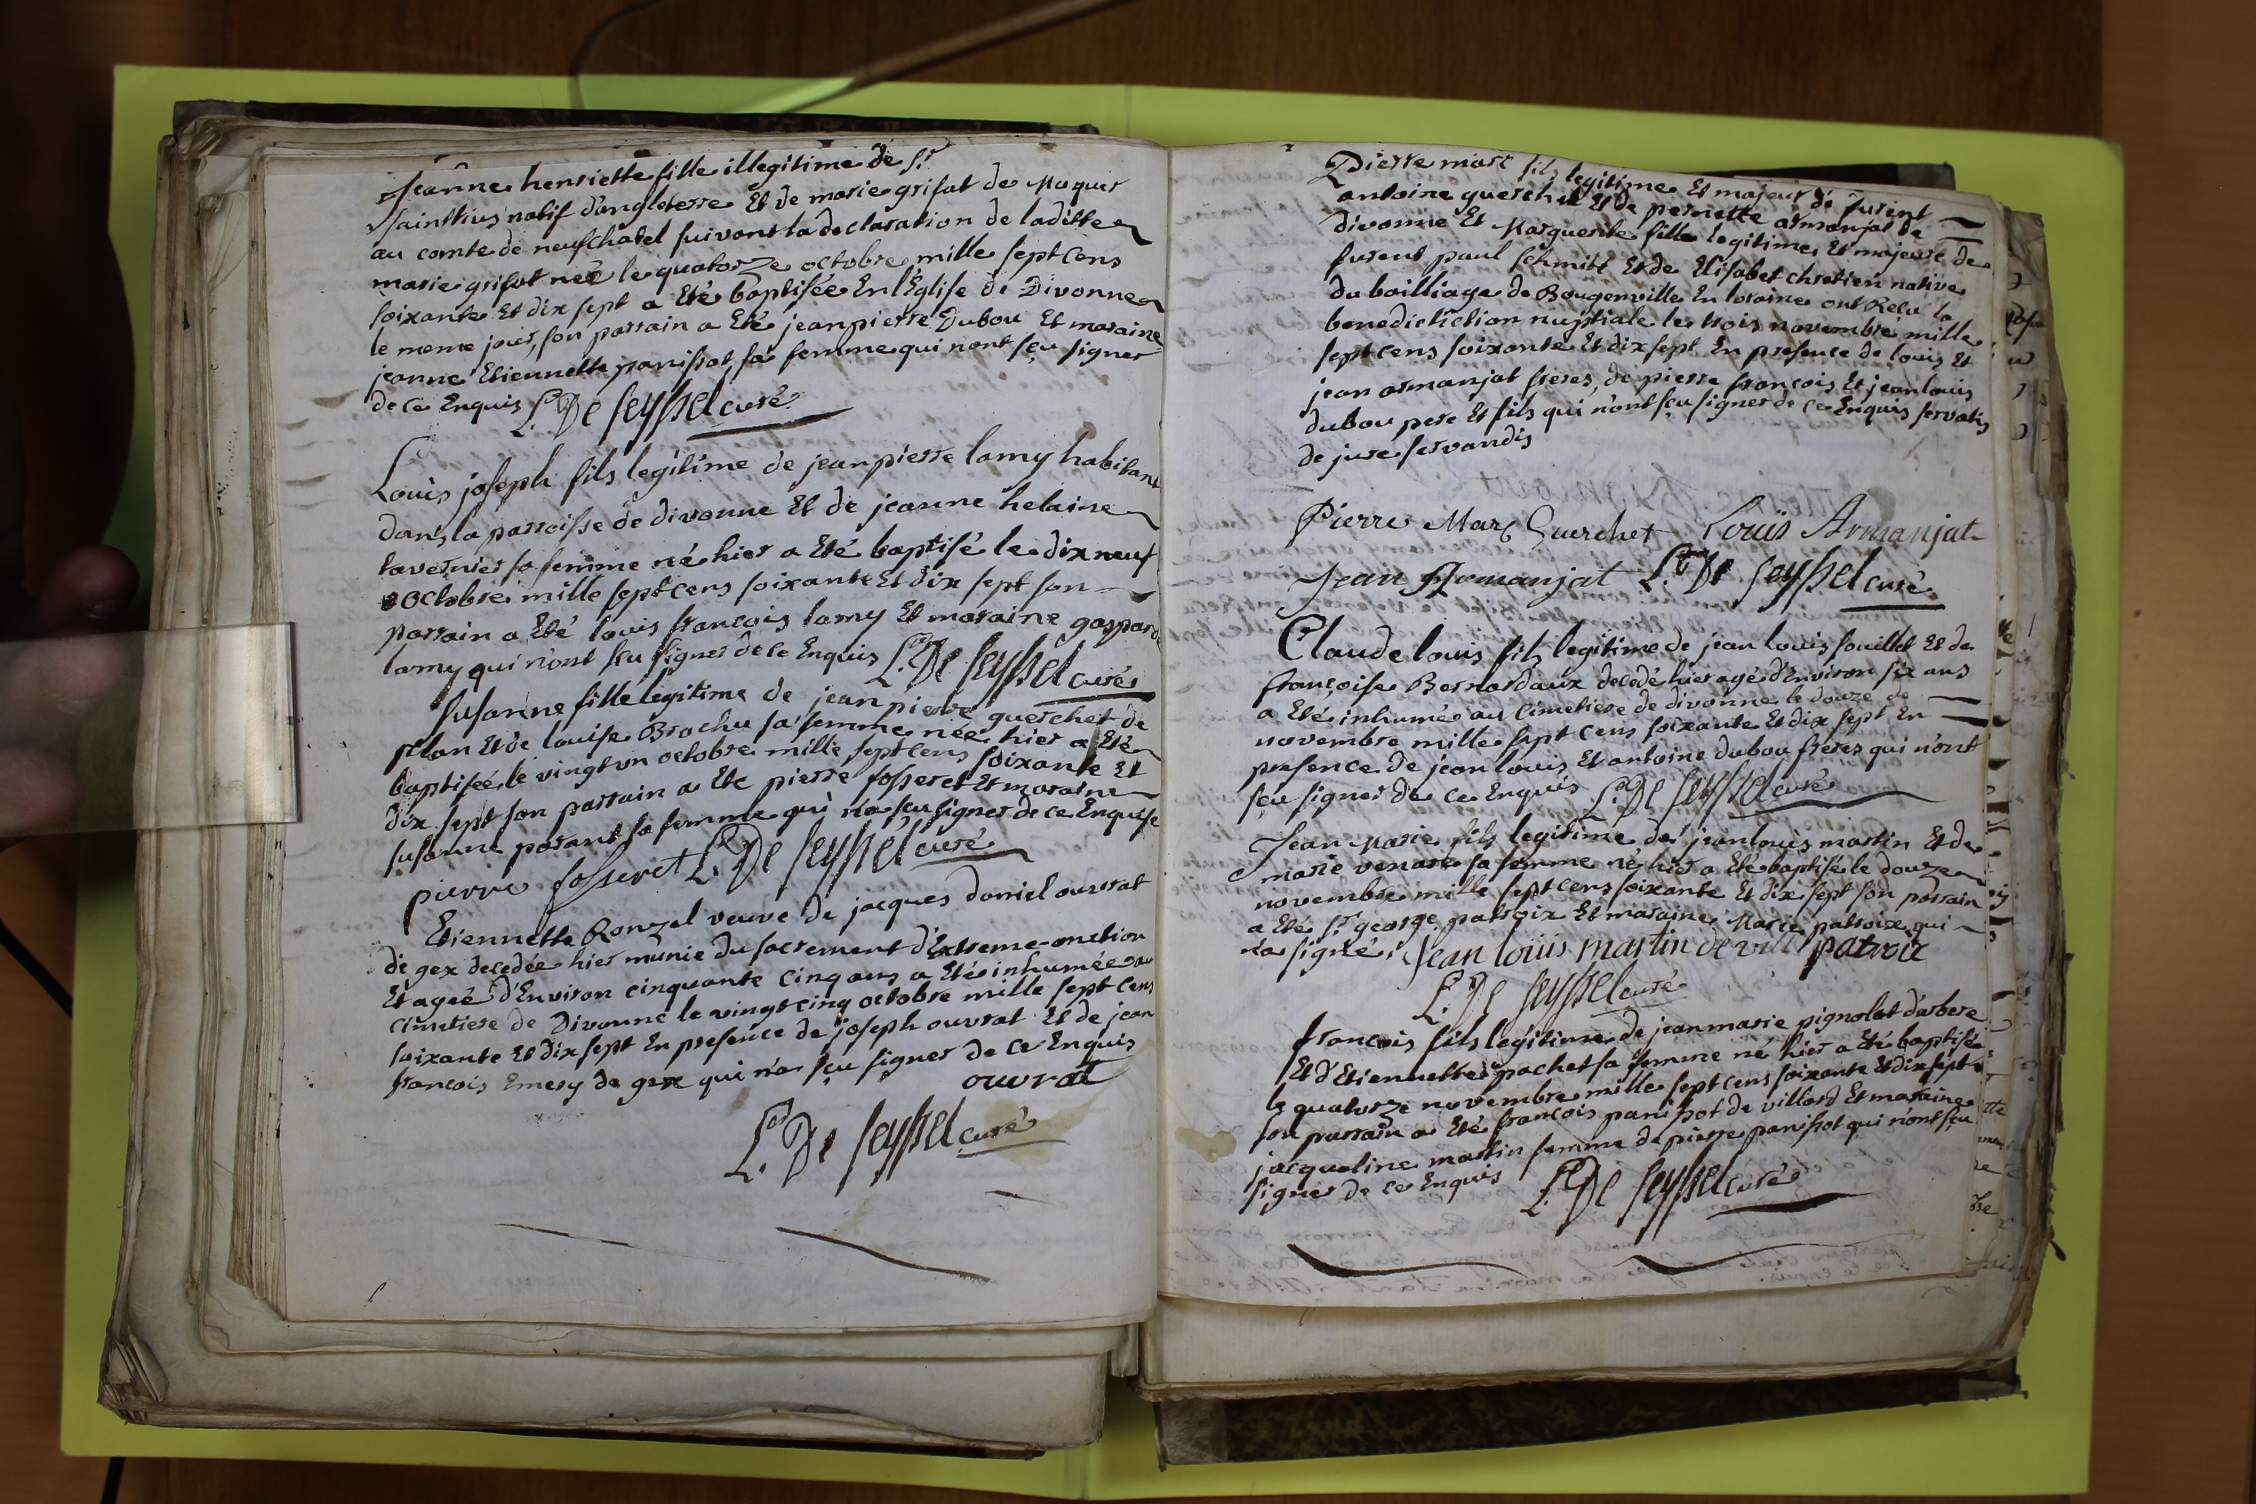 Jeanne henriette fille illegitime de Sr
natif d'angleterre Et de marie grisat de
au comté de neufchatel suivant la declaration de laditte
marie grisat née le quatorze octobre mille sept cens
soixante Et dix sept a Eté baptisée En l'Eglise de Divonne
le meme jour, son parrain a Eté jean pierre Dubou Et maraine
jeanne Etiennette panissot sa femme qui n'ont sçu signer
de ce Enquis L. De Seyssel curé
Louis joseph fils legitime de jean pierre lamy habitant
dans la parroisse de divonne Et de jeanne helaine
tavernier sa femme né hier a Eté baptisé le dix neuf
octobre mille sept cens soixante Et dix sept son
parrain a Eté louis françois lamy Et maraine gasparde
lamy qui n'ont sçu signer de ce Enquis L. De Seyssel curé
Susanne fille legitime de jean pierre querchet de
plan Et de louise Brochu sa femme née hier a Eté
baptisée le vingt un octobre mille sept cens soixante Et
dix sept son parrain a Eté pierre fosseret Et maraine
susanne parant sa femme qui n'a sçu signer de ce Enquise
pierre fosseret L. De Seyssel curé
Etiennette Ronzel veuve de jacques daniel ouvrat
de gex decedée hier munie du sacrement d'Extreme-onction
Et ageé d'Environ cinquante cinq ans a Eté inhumée au
cimetiere de Divonne le vingt cinq octobre mille sept cens
soixante Et dix sept En presence de joseph ouvrat Et de jean
françois Emery de gex qui n'a sçu signer de ce Enquis
ouvrat
L. De Seyssel curé
Pierre marc fils legitime Et majeur de furent
antoine querchet Et de pernette armanjat de
divonne Et Marguerite fille legitime Et majeure de
furent paul schmitt Et de Elisabet chretien native
du bailliage de Bougenville En loraine ont Reçu la
benedictiction nuptiale le trois novembre mille
sept cens soixante Et dix sept En presence de louis Et
jean armanjat freres, de pierre françois Et jean louis
dubou pere Et fils qui n'ont sçu signer de ce Enquis servatis
de jure servandis
Pierre Marc Querchet Louis Armanjat
Jean Armanjat L. De Seyssel curé
Claude louis fils legitime de jean louis fouillet Et de
françoise Bernardaux decedé hier agé d'Environ six ans
a Eté inhumé au cimetiere de divonne le douze de
novembre mille sept cens soixante Et dix sept En
presence de jean louis Et antoine dubou freres qui n'ont
sçu signer de ce Enquis L. De Seyssel curé
Jean Marie fils legitime de jean louis martin Et de
marie venare sa femme né hier a Eté baptisé le douze
novembre mille sept cens soixante Et dix sept son parrain
a Eté Sr george patroix Et maraine Marie patroix qui
n'a signé. Jean loüis martin de vill patroix
L. De Seyssel curé
françois fils legitime de jean marie pignolet d'arbere
Et d'Etiennette pachet sa femme né hier a Eté baptisé
le quatorze novembre mille sept cens soixante Et dix sept
son parrain a Eté françois panissot de villard Et maraine
jacqueline martin femme de pierre panissot qui n'ont sçu
signer de ce Enquis L. De Seyssel curé